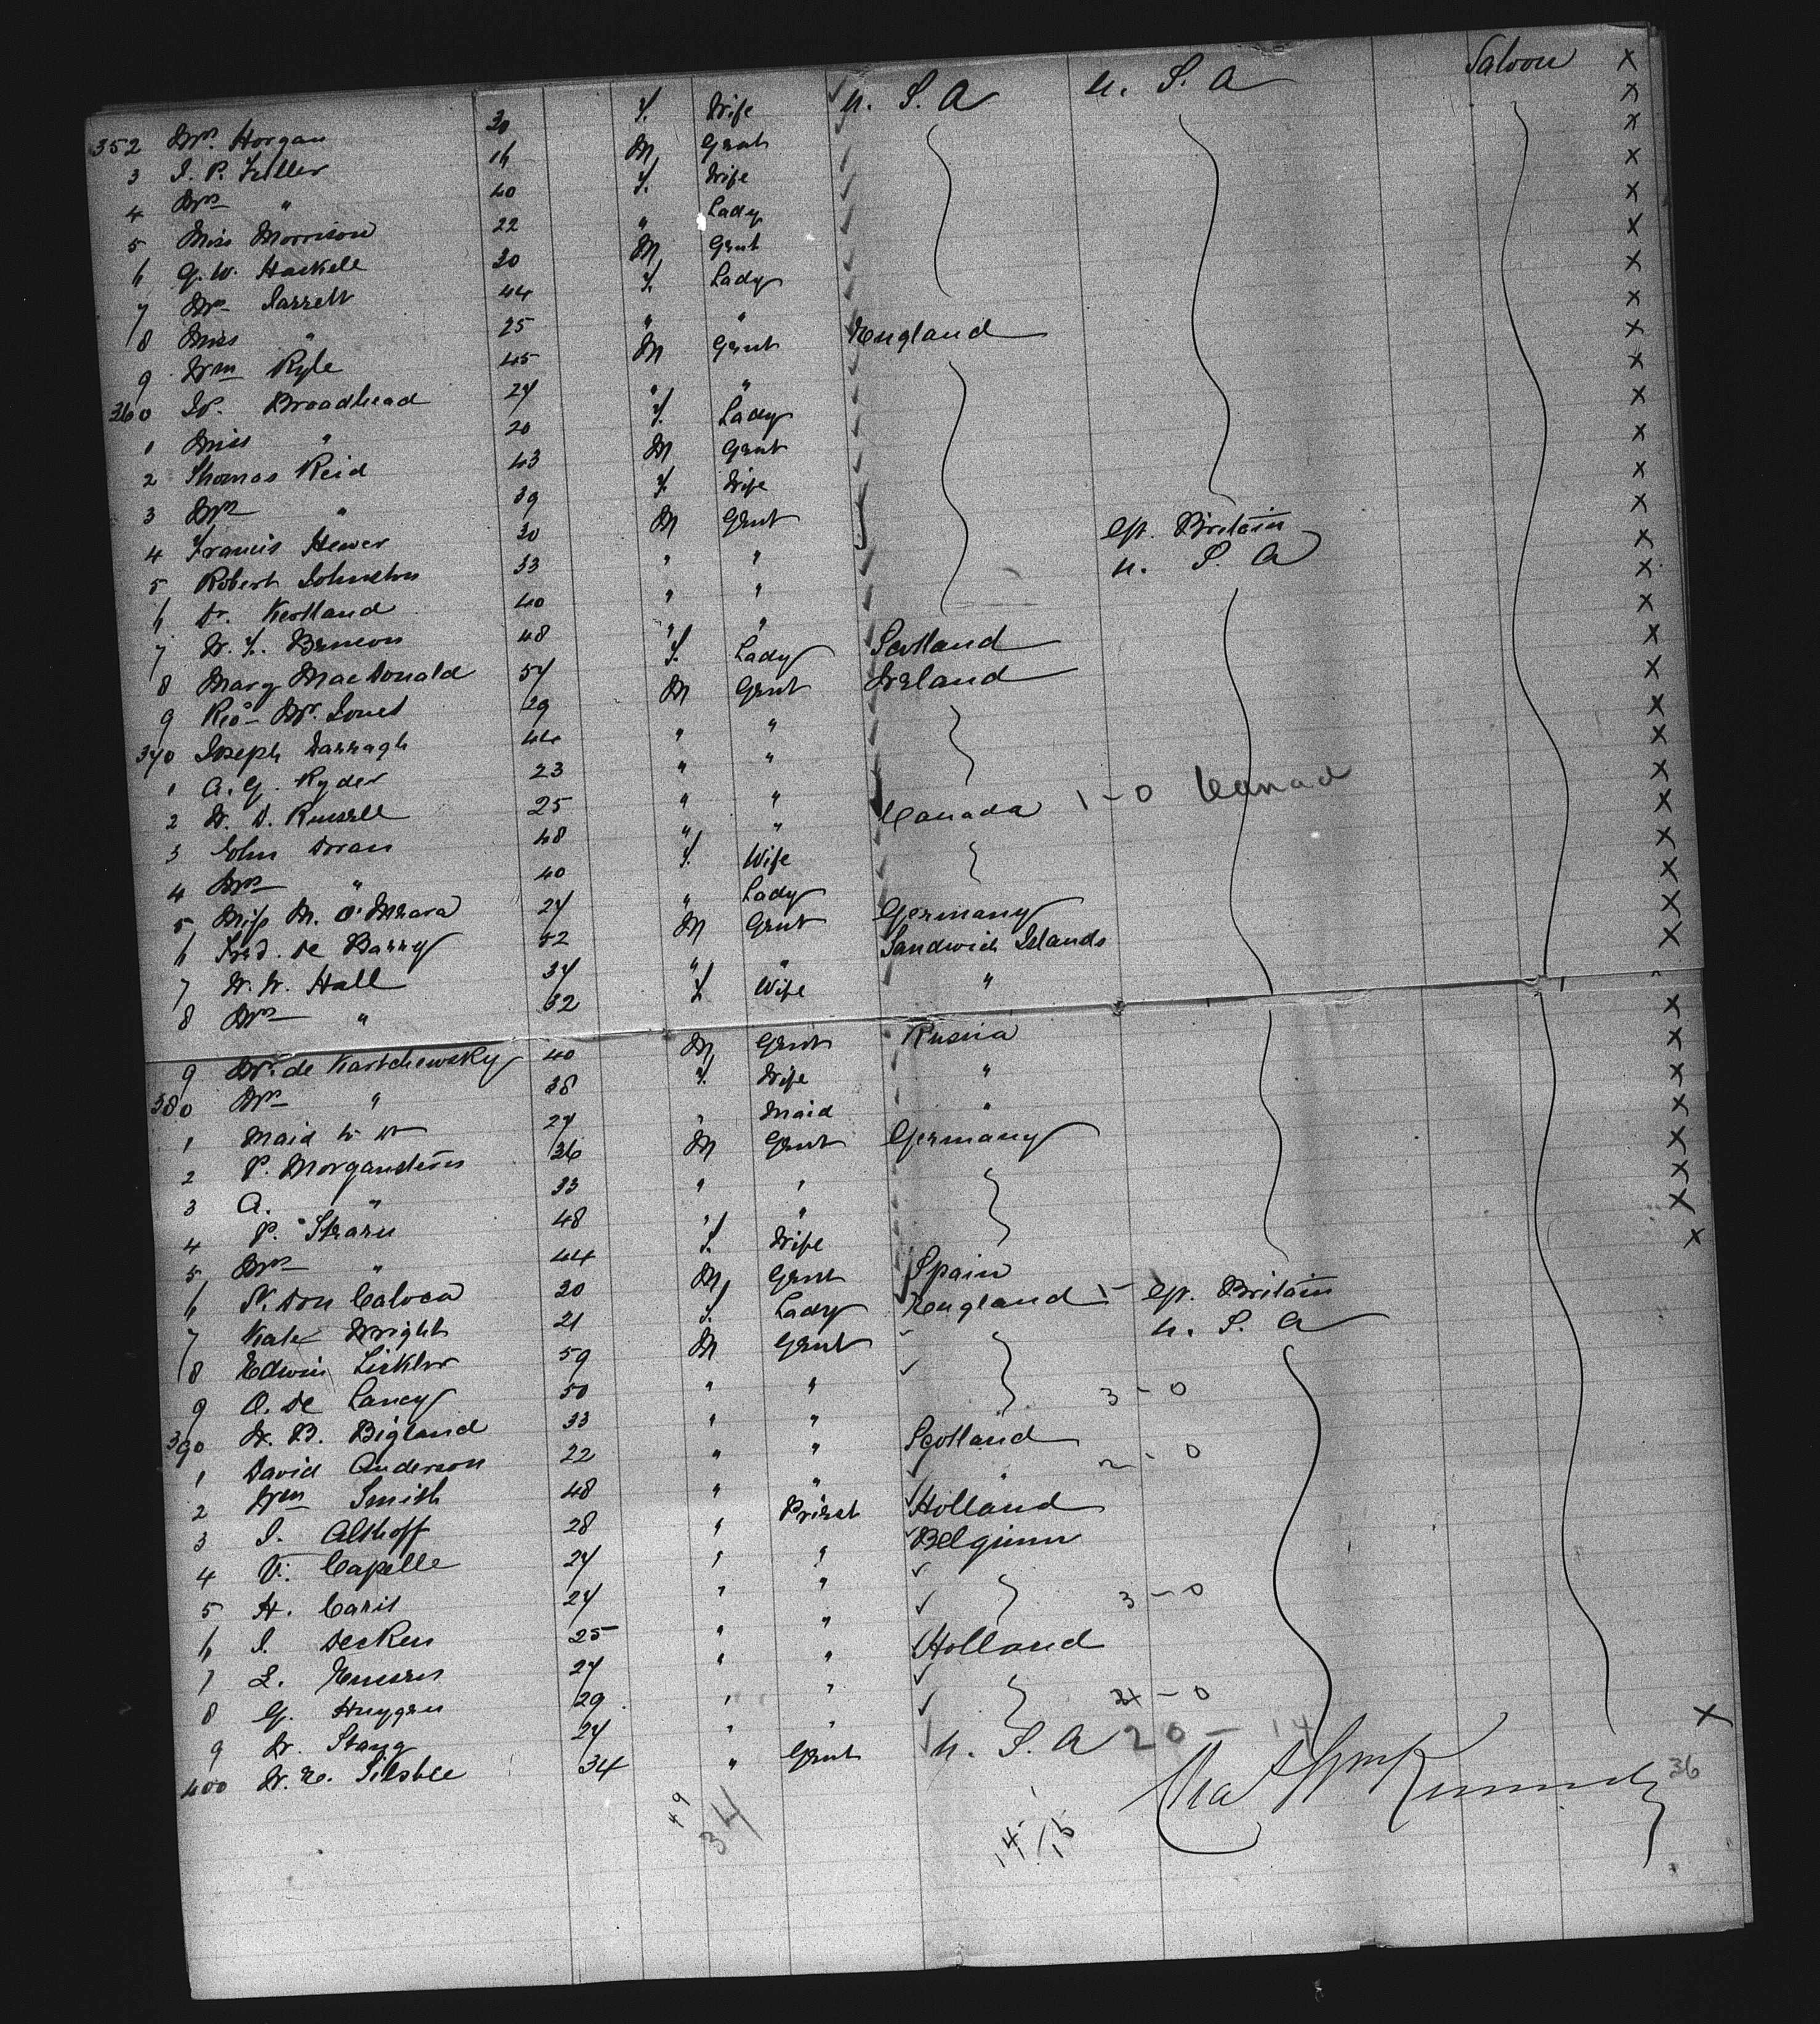 352 Mrs. Horgan 30 F. Wife U. S. A U. S. A Saloon X
3 J. P. Fuller M Gent X
4 Mrs " 40 F. Wife X
5 Miss Morrison 22 " Lady X
6 G. W. Haskell 30 M Gent X
7 Mrs Jarrett 44 F. Lady X
8 Miss " 25 " " X
9 Wm Ryle 45 M Gent England X
360 Broadhead 27 " " X
1 Miss " 20 F. Lady X
2 Thomas Reid 43 M Gent X
3 Mrs " 39 F. Wife X
4 Francis Hewer 30 M Gent Gt. Britain X
5 Robert Johnston 33 " " U. S. A X
6 Dr. Kertland 40 " " X
7 W. F. 48 " " X
8 Mary MacDonald 57 F. Lady Scotland X
9 Mr. Jones 29 M Gent Ireland X
370 Joseph Darragh 44 " " X
1 A. G. Ryder 23 " " X
2 W. D. Russell 25 " " Canada 1 - 0 Canad X
3 John Doran 48 " " X
4 Mrs " 40 F. Wife X
5 Miss M. O'Meara 27 " Lady X
6 Fred. de Barry 52 M Gent Germany X
7 W. W. Hall 37 " " Sandwich Islands X
8 Mrs " 32 F. Wife "
9 Mr. de Kartchewsky 40 M Gent Russia X
380 Mrs " 38 F. Wife " X
1 Maid to do 27 " Maid " X
2 P. Morganstern 36 M Gent Germany X
3 A. " 33 " " X
4 P. Stearn 48 " " X
5 Mrs " 44 F. Wife X
6 N. Don Calvoca 30 M Gent Spain X
7 Kate Wright 21 F. Lady England 1 - Gt. Britain
8 Edwin 59 M Gent U. S. A
9 O. de Lancy 50 " " 3 - 0
390 W. B. Bigland 33 " "
1 David Anderson 22 " " Scotland
2 Wm Smith 48 " " " 2 - 0
3 J. Althoff 28 " Priest Holland
4 V. Capelle 27 " " Belgium
5 H. Caris 27 " "
6 J. Decken 25 " " 3 - 0
7 L. 27 " " Holland
8 G. Huygen 29 " "
9 W. Stang 27 " " - 0
400 W. E. Silsbee 34 " Gent U. S. A 20 - 14 X
36
49
34